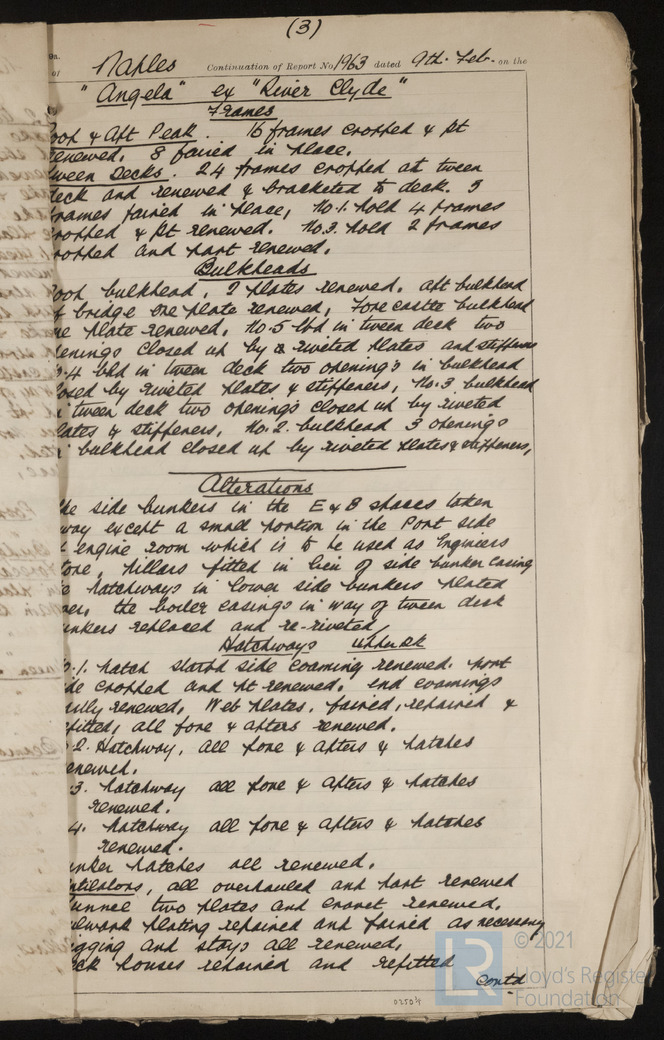 (3)
9a.
of Naples Continuation of Report No 1963 dated 9th. Feb. on the
"Angela" ex "River Clyde"
Frames
oop & Aft Peak. 16 frames cropped & pt
enewed. 8 faired in place.
ween Decks. 24 frames cropped at tween
eck and renewed & bracketed to deck. 5
rames faired in place, No.1. hold 4 frames
ropped & pt renewed. No.3. hold 2 frames
ropped and part renewed.
Bulkheads
oop bulkhead, 9 plates renewed. aft bulkhead
of bridge one plate renewed, Forecastle bulkhead
ne plate renewed, No.5 bhd in tween deck two
penings closed up by riveted plates and stiffeners
o.4 bhd in tween deck two openings in bulkhead
losed by riveted plates & stiffeners, No.3 bulkhead
n tween deck two openings closed up by riveted
lates & stiffeners, No.2. bulkhead 3 openings
bulkhead closed up by riveted plates & stiffeners,
Alterations
he side bunkers in the E & B spaces taken
way except a small portion in the Port side
engine room which is to be used as Engineers
tore, pillars fitted in lieu of side bunker casing
e hatchways in lower side bunkers plated
over, the boiler casings in way of tween deck
unkers replaced and re-riveted,
Hatchways upper dk
o.1. hatch starbd side coaming renewed. port
ide cropped and pt renewed. end coamings
ully renewed, Web plates, faired, repaired &
efitted, all fore & afters renewed.
2. Hatchway, all fore & afters & hatches
enewed.
3. hatchway all fore & afters & hatches
renewed.
4. hatchway all fore & afters & hatches
renewed.
unker hatches all renewed.
entilators, all overhauled and part renewed
unnel two plates and cravat renewed.
ulwark plating repaired and faired as necessary
igging and stays all renewed,
eck houses repaired and refitted
contd
0250 ½
© 2021
Lloyd's Register
Foundation